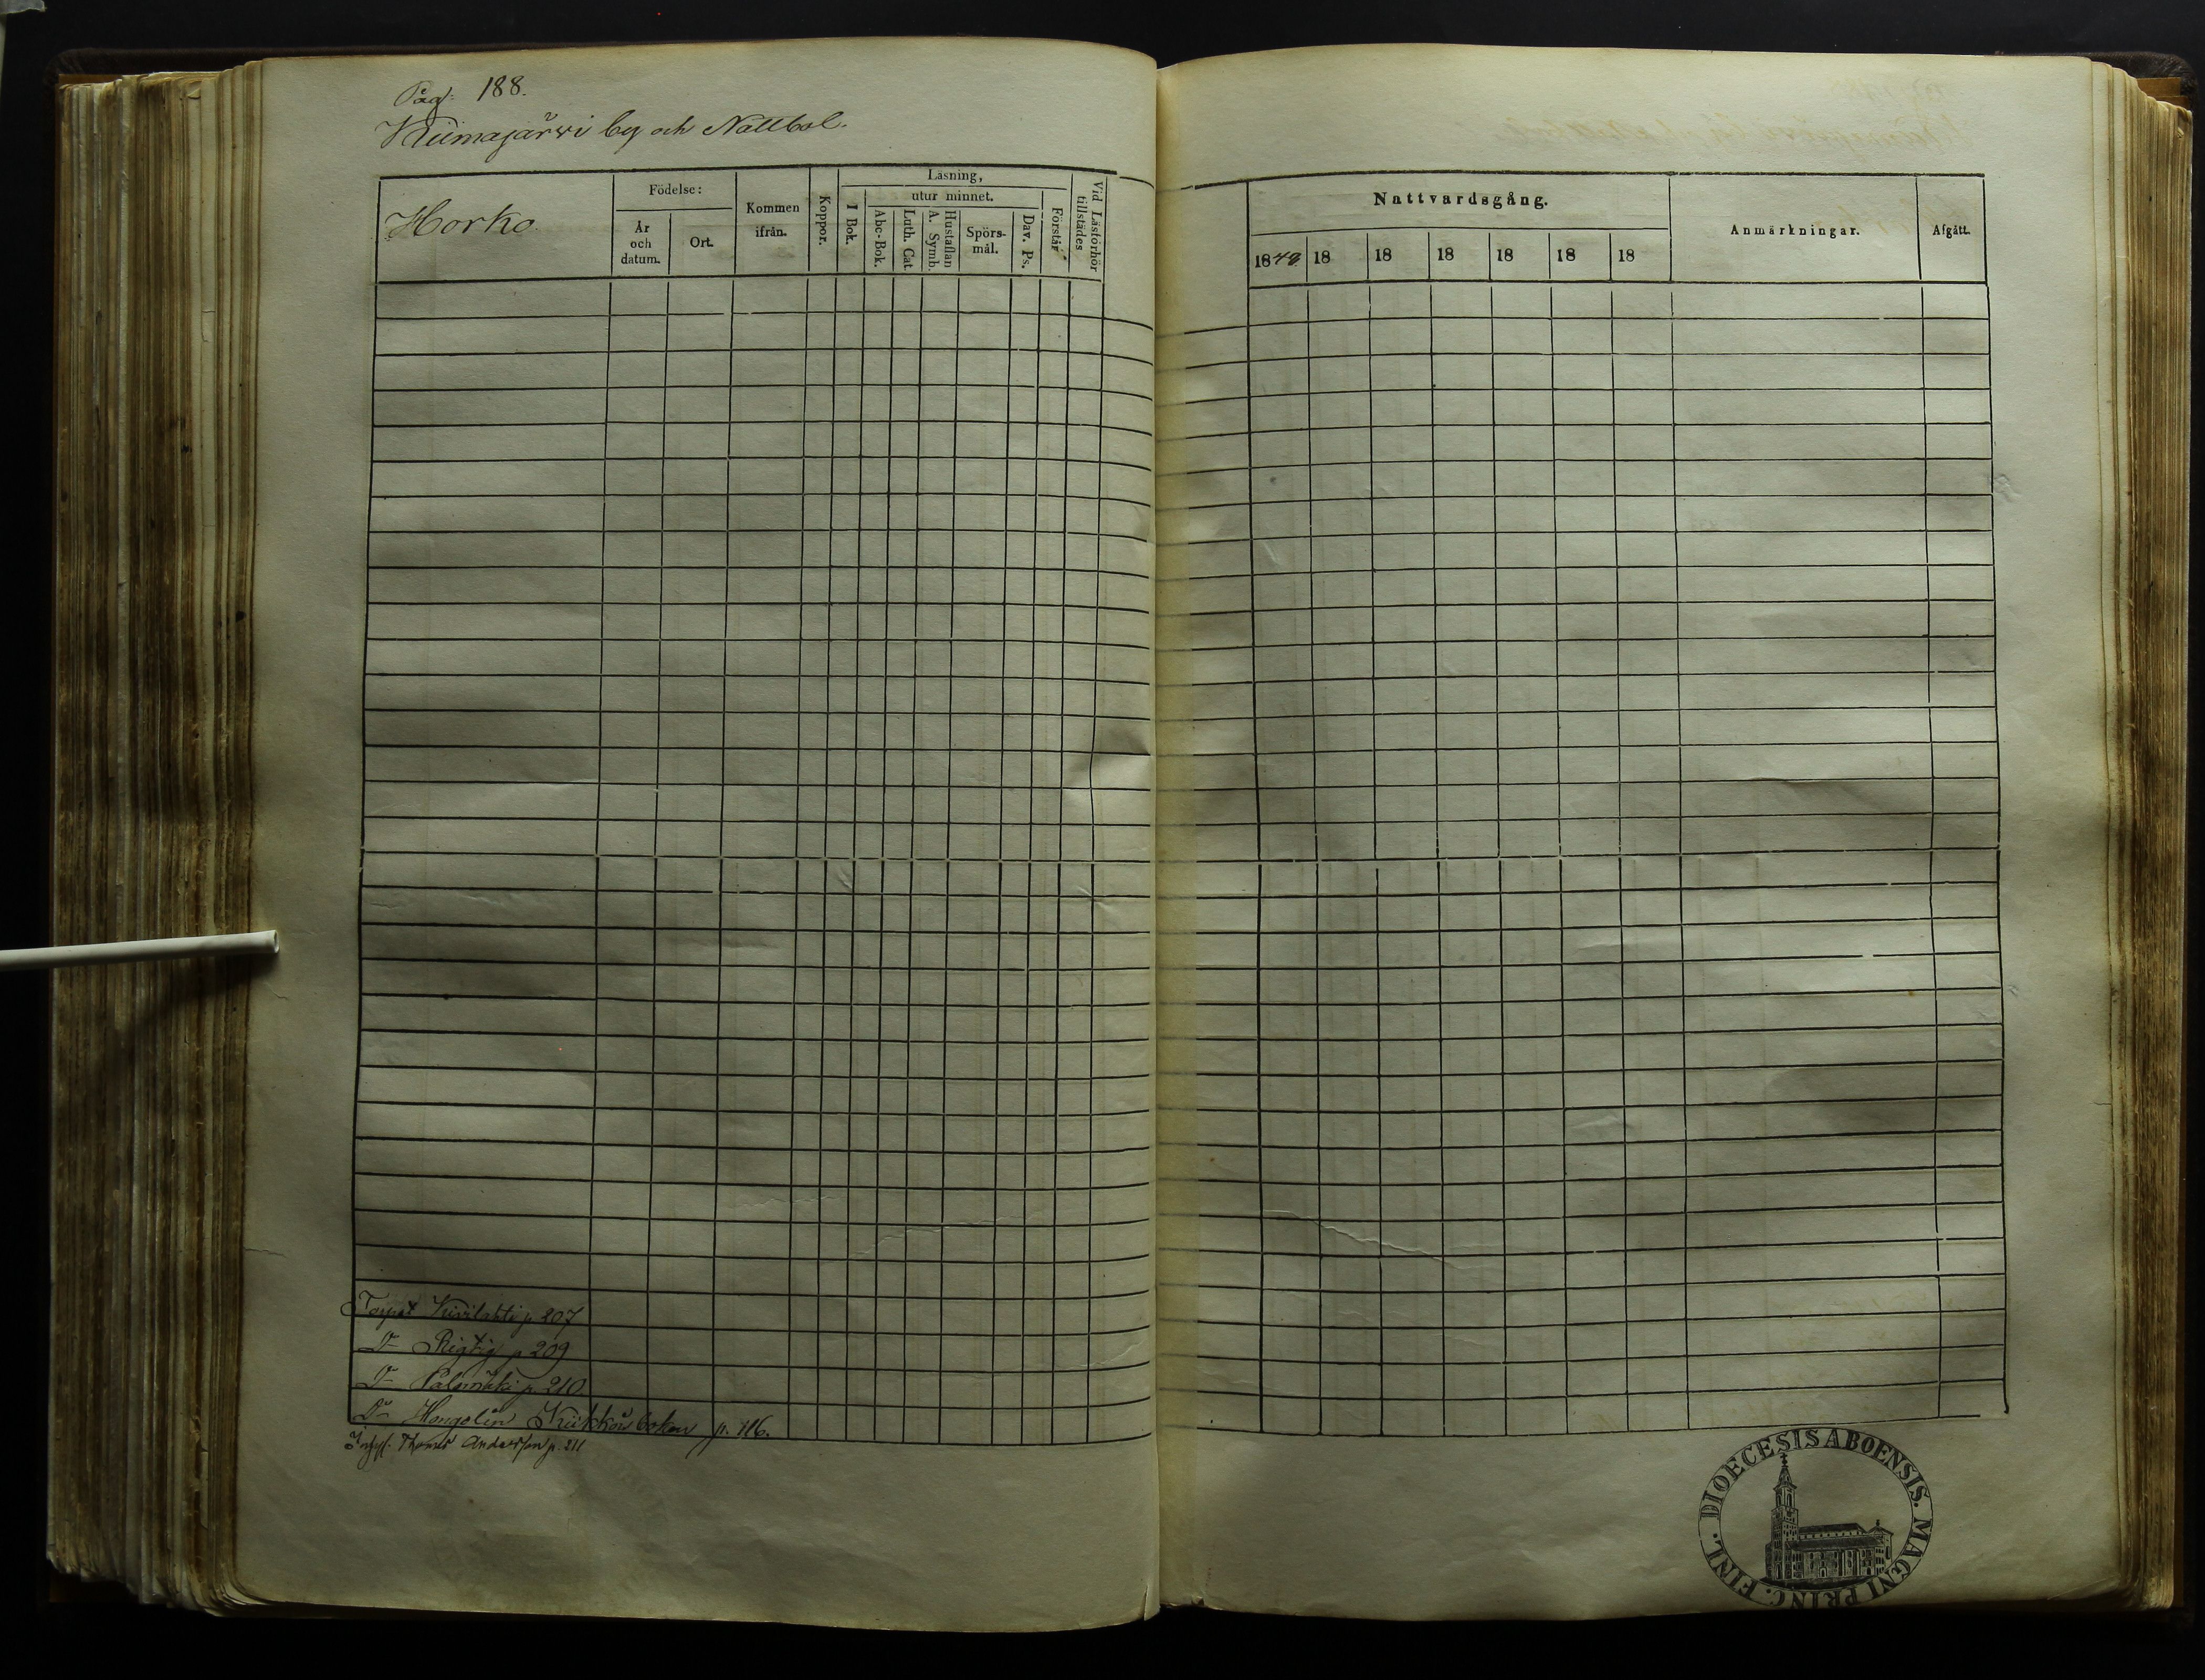 Pag: 188.
Kiimajärvi by och Nättbol.
Horko.
Födelse:
År
och
datum.
Ort.
Kommen
ifrån.
Koppor.
Läsning,
I Bok.
utur minnet.
Abc-Bok.
Luth. Cat.
A. Symb.
Hustaflan
Spörs-
mål.
Dav. Ps.
Förstår
Vid Läsförhör
tillstädes
Nattvardsgång.
1848
18
18
18
18
18
18
Anmärkningar.
Afgått.
Torpet Kivilahti p. 207
Do Rigtig p 209
Do Palomäki p. 210
Do Hongolin Kiikkois boken p. 116.
Thomas Andersson p. 211
DIOECESIS ABOENSIS. MAGNI PRINC. FINL.